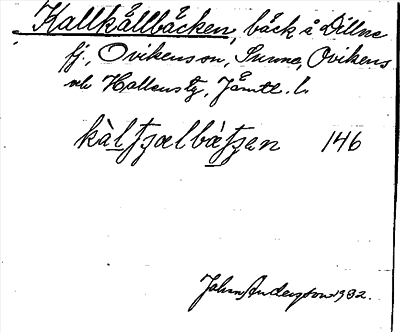 Kallkällbäcken, bäck å Dillne
fj., Ovikens sn, Sunne, Ovikens
o. Hallens tg, Jämtl. l.
kàltjɔelbɛ̀tjen 146
Johan Anderson 1932.